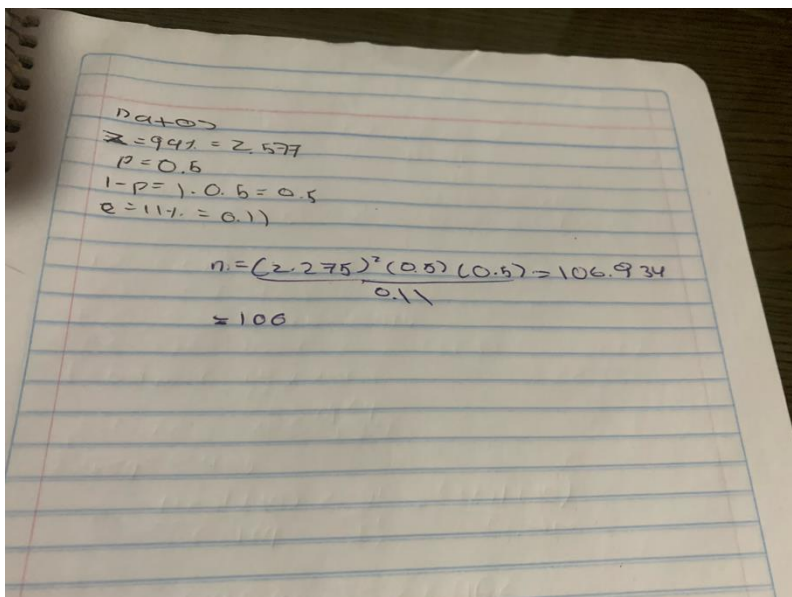 Datos
Z = 99% = 2.577
P = 0.5
1-P = 1.0.5 = 0.5
e = 11% = 0.11
n = (2.275)² (0.5) (0.5) = 106.934
0.11
= 106